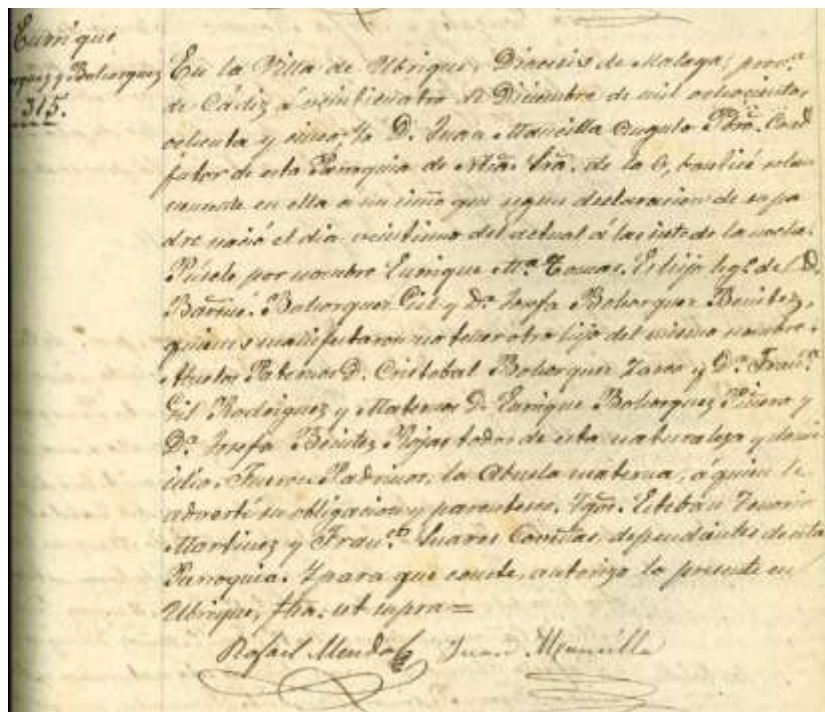 Enrique
y Bohorquez
315.
En la Villa de Ubrique, Diocesis de Malaga, prov.ª
de Cádiz á veinticuatro de Diciembre de mil ochocientos
ochenta y cinco, Yo D. Juan Mancilla Angulo Pbro. Coad
jutor de esta Parroquia de Ntra. Sra. de la O, bauticé solem
nemente en ella a un niño que segun declaracion de su pa
dre nació el dia veintiuno del actual á las siete de la noche.
Púsele por nombre Enrique M.ª Tomas. Es hijo leg.º de D.
Bartmé. Bohorquez Gil y D.ª Josefa Bohorquez Benitez,
quienes manifestaron no tener otro hijo del mismo nombre.
Abuelos Paternos D. Cristobal Bohorquez y D.ª Fran.ca
Gil Rodriguez y Maternos D. Enrique Bohorquez Piñero y
D.ª Josefa Benitez Rojas todos de esta naturaleza y domi
cilio. Fueron Padrinos, la Abuela materna, á quien le
advertí su obligacion y parentesco. Tgos. Esteban Tenorio
Martinez y Fran.co Suares dependientes de esta
Parroquia. Y para que conste, autorizo la presente en
Ubrique, fha. ut supra =
Rafael Juan Mancilla